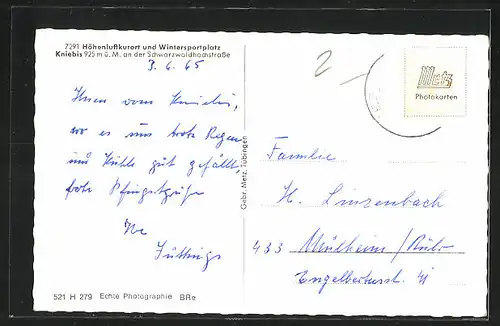 7291 Höhenluftkurort und Wintersportplatz
Kniebis 925 m ü. M. an der Schwarzwaldhochstraße
3. 6. 65
Ihnen vom Kniebis,
wo es uns trotz Regen
und Kühle gut gefällt,
frohe Pfingstgrüße
Ihre
2
Metz
Photokarten
Gebr. Metz, Tübingen
Familie
H. Linzenbach
433 Mülheim/Ruhr
Engelbertusstr. 41
521 H 279 Echte Photographie BRe